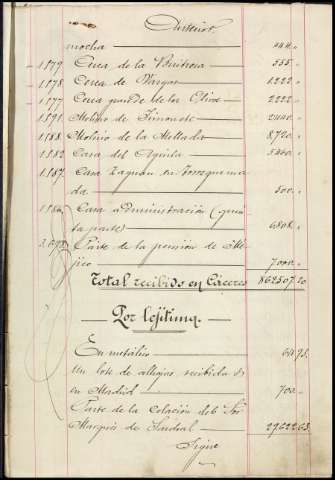 Anterior
mocha
1179 Cerca de la 555.
1178 Cerca de Vargas 1.222
1177 Cerca grande de los Olivos 2.222
1191 Molino de 2.440
1188 Molino de la Mellada 8.720
1182 Casa del Aguila 5.460
1187 Casa Zaguan en Torrequema
da 500.
Casa administración (quin
ta parte) 6.808
Parte de la pension de Mé
jico 7.000
Total recibido en Cáceres 862.507.20
Por lejítima.
En metálico
Un lote de alhajas recibido
en Madrid 700
Parte de la colación del Sor
Marqués de 29.622.63
Sigue